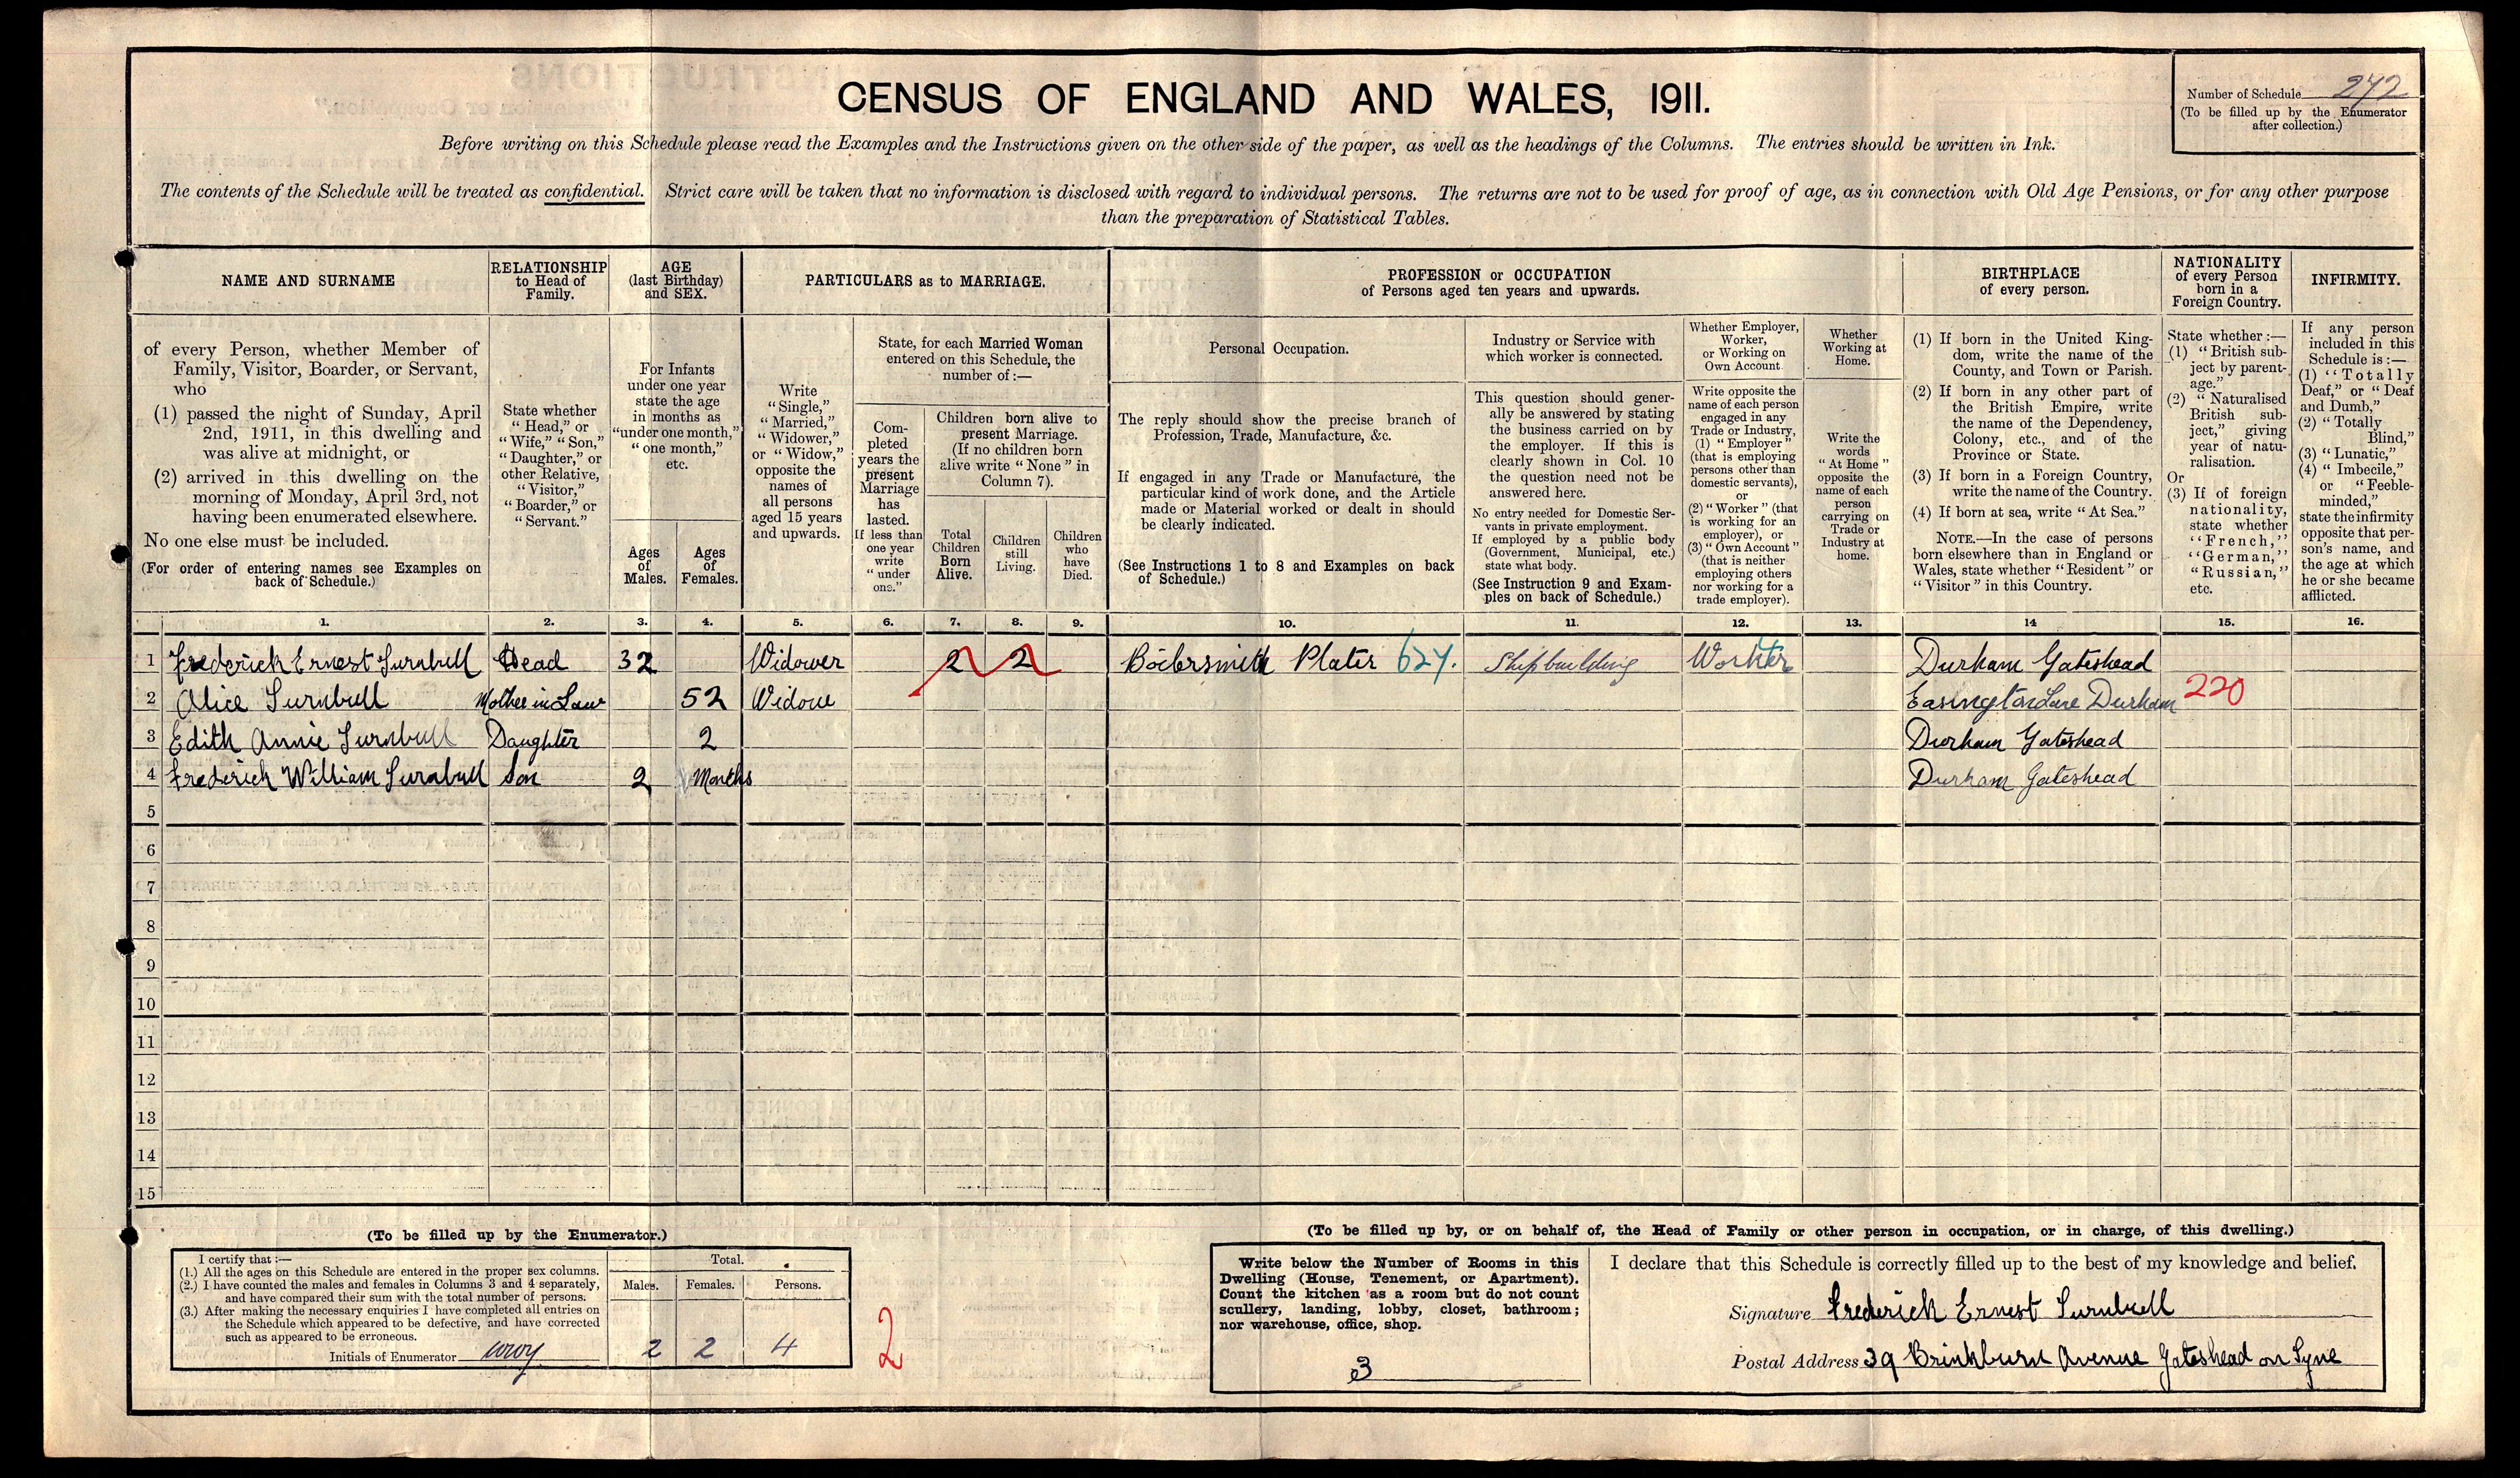 CENSUS OF ENGLAND AND WALES, 1911.
Number of Schedule 242
(To be filled up by the Enumerator
after collection.)
Before writing on this Schedule please read the Examples and the Instructions given on the other side of the paper, as well as the headings of the Columns. The entries should be written in Ink.
The contents of the Schedule will be treated as confidential. Strict care will be taken that no information is disclosed with regard to individual persons. The returns are not to be used for proof of age, as in connection with Old Age Pensions, or for any other purpose
than the preparation of Statistical Tables.
NAME AND SURNAME
of every Person, whether Member of
Family, Visitor, Boarder, or Servant,
who
(1) passed the night of Sunday, April
2nd, 1911, in this dwelling and
was alive at midnight, or
(2) arrived in this dwelling on the
morning of Monday, April 3rd, not
having been enumerated elsewhere.
No one else must be included.
(For order of entering names see Examples on
back of Schedule.)
RELATIONSHIP
to Head of
Family.
State whether
"Head," or
"Wife," "Son,"
"Daughter," or
other Relative,
"Visitor,"
"Boarder," or
"Servant."
AGE
(last Birthday)
and SEX.
For Infants
under one year
state the age
in months as
"under one month,"
"one month,"
etc.
Ages
of
Males.
Ages
of
Females.
PARTICULARS as to MARRIAGE.
Write
"Single,"
"Married,"
"Widower,"
or "Widow,"
opposite the
names of
all persons
aged 15 years
and upwards.
State, for each Married Woman
entered on this Schedule, the
number of :—
Com-
pleted
years the
present
Marriage
has
lasted.
If less than
one year
write
"under
one."
Children born alive to
present Marriage.
(If no children born
alive write "None" in
Column 7).
Total
Children
Born
Alive.
Children
still
Living.
Children
who
have
Died.
PROFESSION or OCCUPATION
of Persons aged ten years and upwards.
Personal Occupation.
The reply should show the precise branch of
Profession, Trade, Manufacture, &c.
If engaged in any Trade or Manufacture, the
particular kind of work done, and the Article
made or Material worked or dealt in should
be clearly indicated.
(See Instructions 1 to 8 and Examples on back
of Schedule.)
Industry or Service with
which worker is connected.
This question should gener-
ally be answered by stating
the business carried on by
the employer. If this is
clearly shown in Col. 10
the question need not be
answered here.
No entry needed for Domestic Ser-
vants in private employment.
If employed by a public body
(Government, Municipal, etc.)
state what body.
(See Instruction 9 and Exam-
ples on back of Schedule.)
Whether Employer,
Worker,
or Working on
Own Account.
Write opposite the
name of each person
engaged in any
Trade or Industry,
(1) "Employer"
(that is employing
persons other than
domestic servants),
or
(2) "Worker" (that
is working for an
employer), or
(3) "Own Account"
(that is neither
employing others
nor working for a
trade employer).
Whether
Working at
Home.
Write the
words
"At Home"
opposite the
name of each
person
carrying on
Trade or
Industry at
home.
BIRTHPLACE
of every person.
(1) If born in the United King-
dom, write the name of the
County, and Town or Parish.
(2) If born in any other part of
the British Empire, write
the name of the Dependency,
Colony, etc., and of the
Province or State.
(3) If born in a Foreign Country,
write the name of the Country.
(4) If born at sea, write "At Sea."
NOTE.—In the case of persons
born elsewhere than in England or
Wales, state whether "Resident" or
"Visitor" in this Country.
NATIONALITY
of every Person
born in a
Foreign Country.
State whether :—
(1) "British sub-
ject by parent-
age."
(2) "Naturalised
British sub-
ject," giving
year of natu-
ralisation.
Or
(3) If of foreign
nationality,
state whether
"French,"
"German,"
"Russian,"
etc.
INFIRMITY.
If any person
included in this
Schedule is :—
(1) "Totally
Deaf," or "Deaf
and Dumb,"
(2) "Totally
Blind,"
(3) "Lunatic,"
(4) "Imbecile,"
or "Feeble-
minded,"
state the infirmity
opposite that per-
son's name, and
the age at which
he or she became
afflicted.
1. 2. 3. 4. 5. 6. 7. 8. 9. 10. 11. 12. 13. 14 15. 16.
1 Frederick Ernest Turnbull Head 32 Widower 2 2 Boilersmith Plater 627. Shipbuilding Worker Durham Gateshead
2 Alice Turnbull Mother in Law 52 Widow Easington Lane Durham 220
3 Edith Annie Turnbull Daughter 2 Durham Gateshead
4 Frederick William Turnbull Son 2 Months Durham Gateshead
5
6
7
8
9
10
11
12
13
14
15
(To be filled up by the Enumerator.)
I certify that :—
(1.) All the ages on this Schedule are entered in the proper sex columns.
(2.) I have counted the males and females in Columns 3 and 4 separately,
and have compared their sum with the total number of persons.
(3.) After making the necessary enquiries I have completed all entries on
the Schedule which appeared to be defective, and have corrected
such as appeared to be erroneous.
Initials of Enumerator
Total.
Males. Females. Persons.
2 2 4
2
(To be filled up by, or on behalf of, the Head of Family or other person in occupation, or in charge, of this dwelling.)
Write below the Number of Rooms in this
Dwelling (House, Tenement, or Apartment).
Count the kitchen as a room but do not count
scullery, landing, lobby, closet, bathroom;
nor warehouse, office, shop.
3
I declare that this Schedule is correctly filled up to the best of my knowledge and belief.
Signature Frederick Ernest Turnbull
Postal Address 39 Brinkburn Avenue Gateshead on Tyne